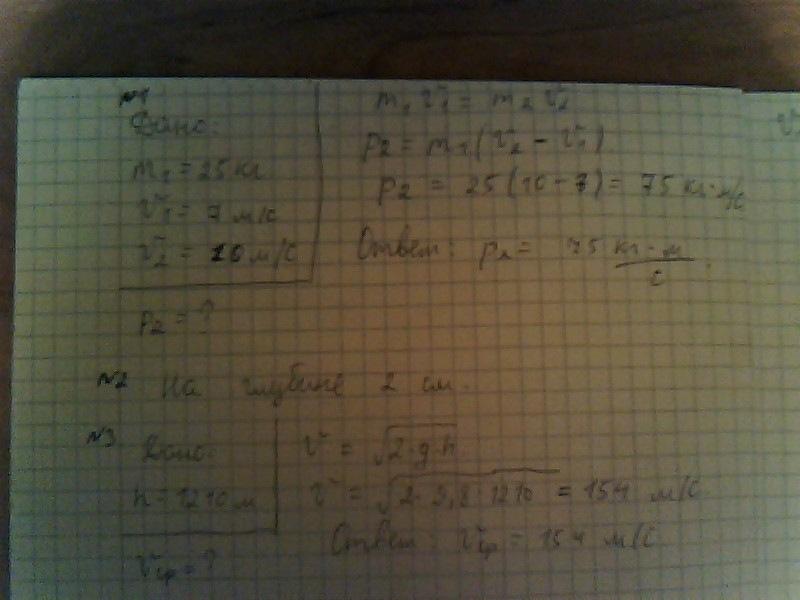 №1
Дано:
m₁ = 25 кг
v₁ = 7 м/с
v₂ = 10 м/с
p₂ = ?
m₁ v₁ = m₂ v₂
p₂ = m₁(v₂ - v₁)
p₂ = 25(10-7) = 75 кг·м/с
Ответ: p₂ = 75 кг·м/с.
№2 На глубине 2 см.
№3
Дано:
h = 1210 м
vср = ?
v = √2·g·h
v = √2·9,8·1210 = 154 м/с
Ответ: vср = 154 м/с